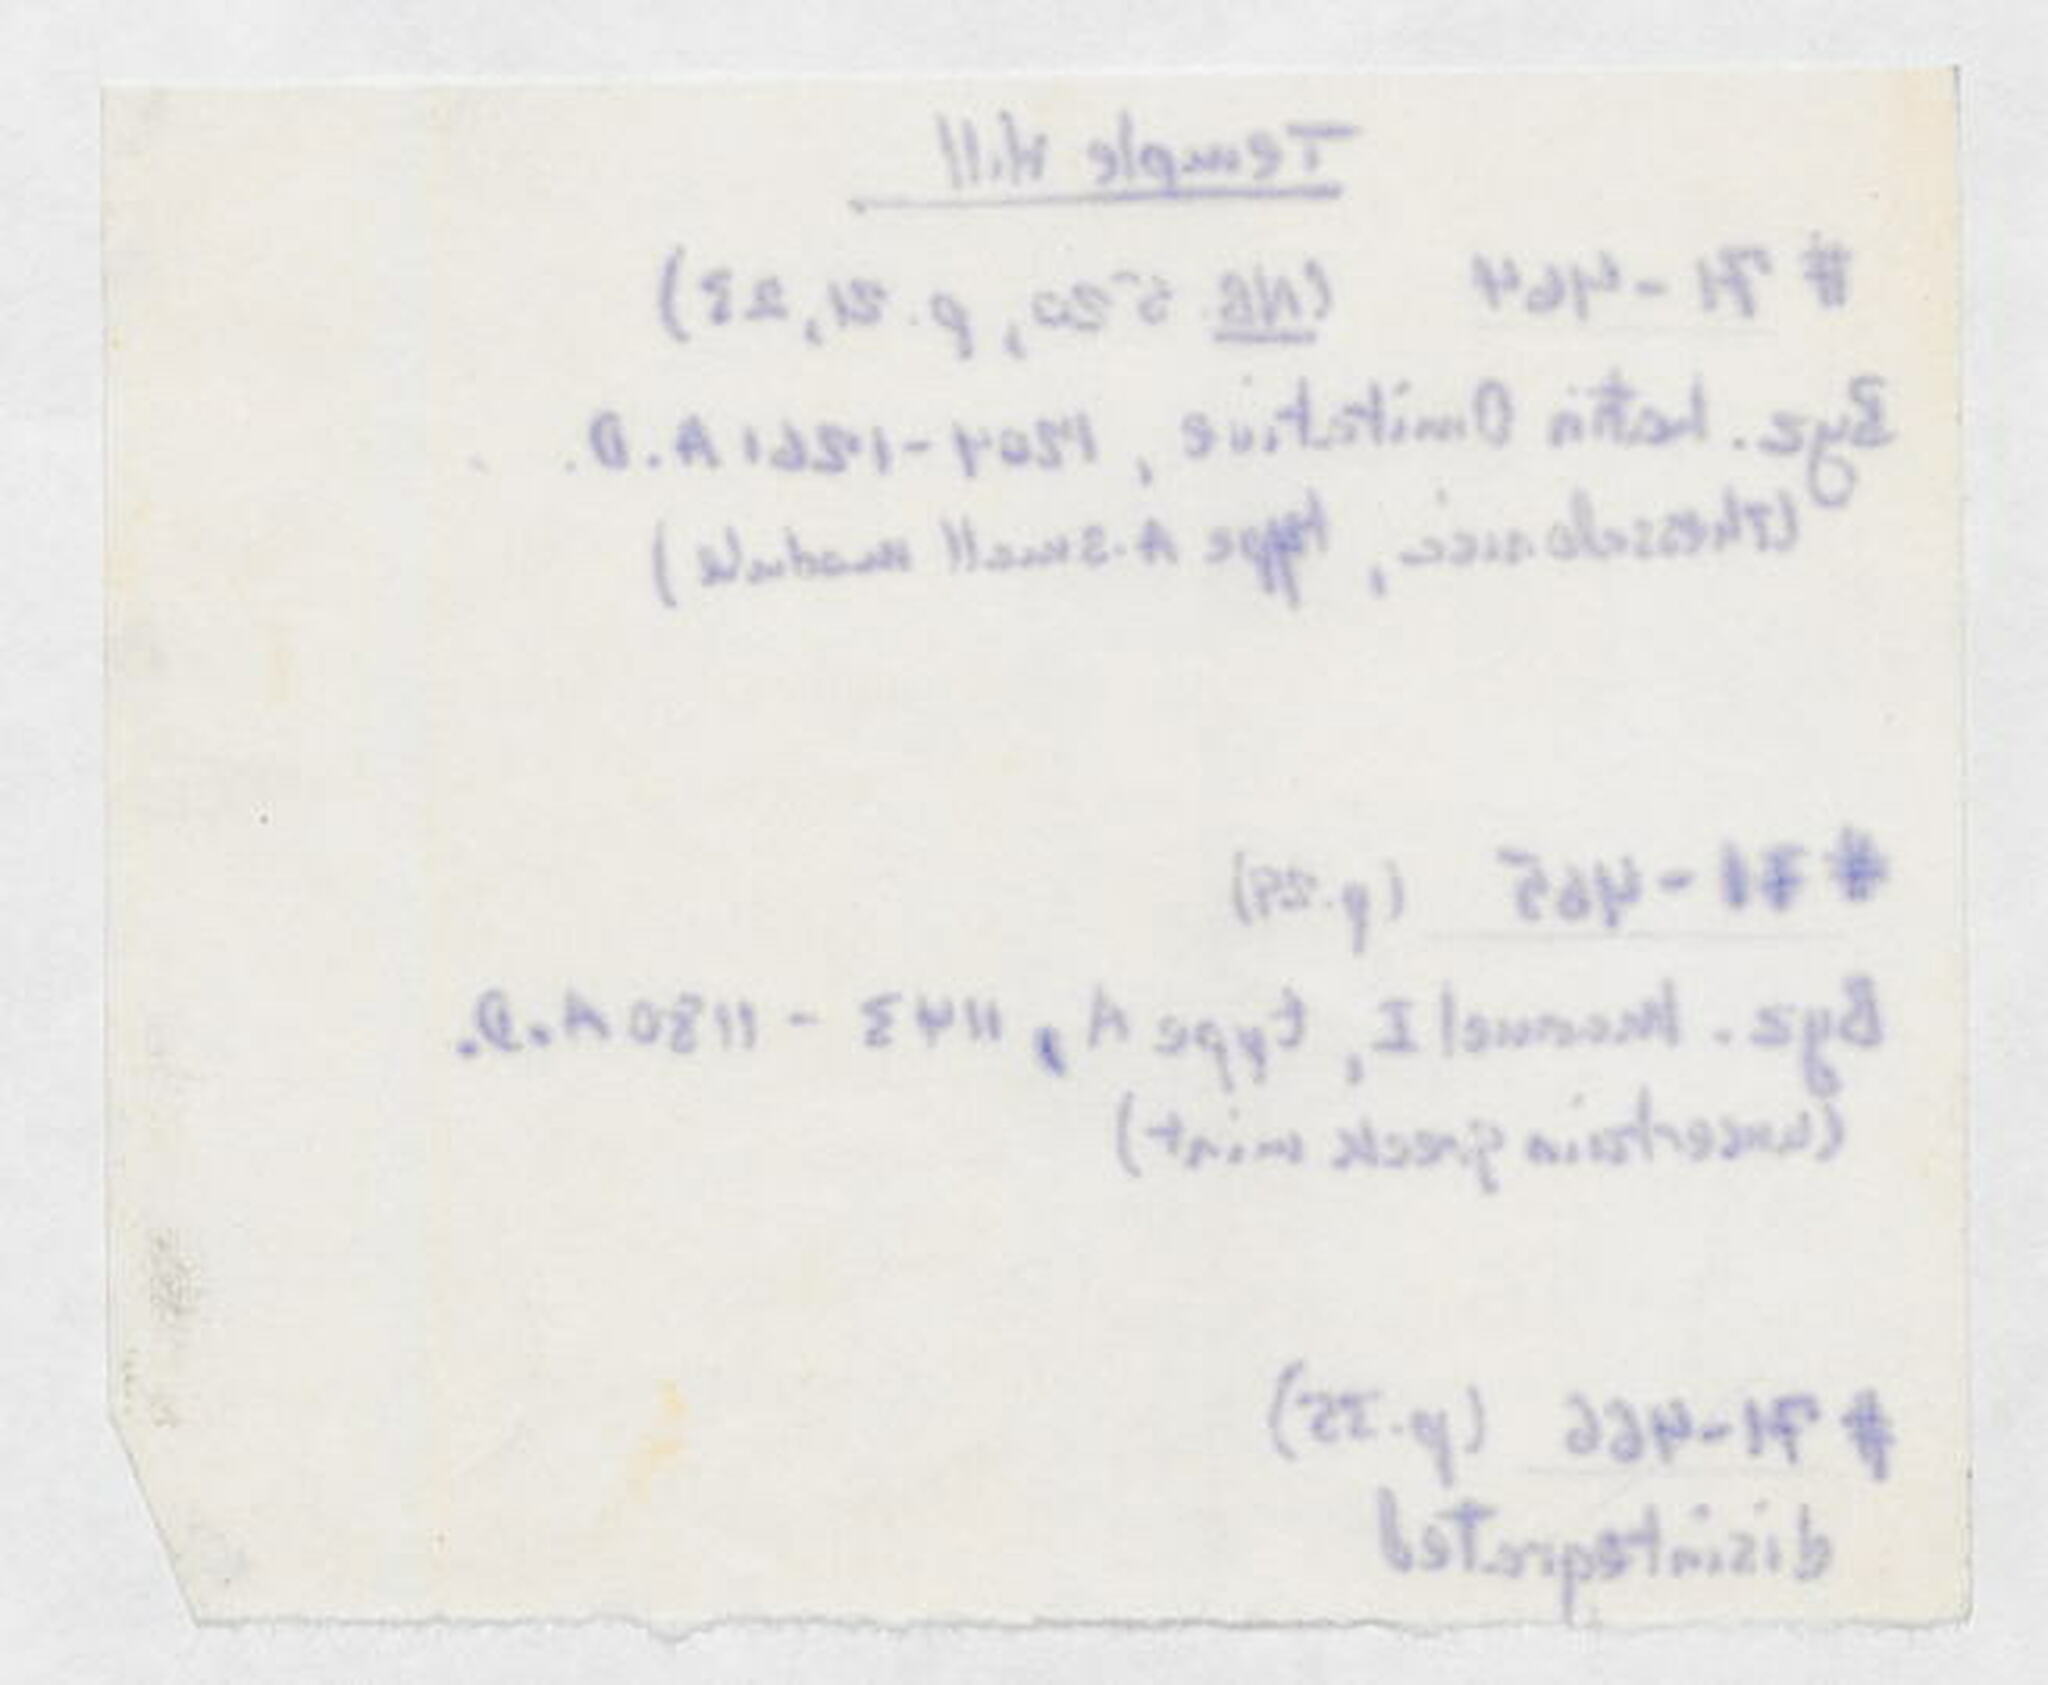 Temple Hill
# 71-464 (NB 520, p. 21, 23)
Byz. Latin Imitative, 1204-1261 A.D.
(Thessalonica, type A. small module)
# 71-465 (p. 29)
Byz. Manuel I, type A, 1143 - 1180 A.D.
(uncertain greek mint)
# 71-466 (p. 35)
disintegrated